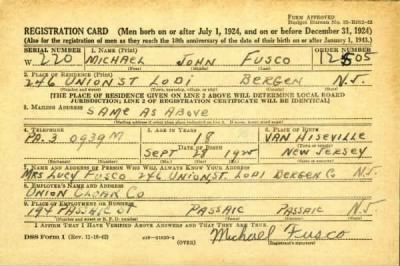 FORM APPROVED
REGISTRATION CARD—(Men born on or after July 1, 1924, and on or before December 31, 1924)
(Also for the registration of men as they reach the 18th anniversary of the date of their birth on or after January 1, 1925.)
SERIAL NUMBER 1. NAME (Print) ORDER NUMBER
W 220 MICHAEL JOHN FUSCO 12505
(First) (Middle) (Last)
2. PLACE OF RESIDENCE (Print)
246 UNION ST LODI BERGEN N.J.
(Number and street) (Town, township, village, or city) (County) (State)
[THE PLACE OF RESIDENCE GIVEN ON LINE 2 ABOVE WILL DETERMINE LOCAL BOARD
JURISDICTION; LINE 2 OF REGISTRATION CERTIFICATE WILL BE IDENTICAL]
3. MAILING ADDRESS
SAME AS ABOVE
4. TELEPHONE 5. AGE IN YEARS 6. PLACE OF BIRTH
PA. 3 0939M 18 VAN HISEVILLE
DATE OF BIRTH
SEPT 1925 NEW JERSEY
(Mo.) (Day) (Yr.) (State or country)
7. NAME AND ADDRESS OF PERSON WHO WILL ALWAYS KNOW YOUR ADDRESS
MRS LUCY FUSCO 246 UNION ST. LODI BERGEN CO N.J.
8. EMPLOYER'S NAME AND ADDRESS
UNION CLOAK CO
9. PLACE OF EMPLOYMENT OR BUSINESS
194 PASSAIC ST PASSAIC PASSAIC N.J.
(Number and street or R. F. D. number) (Town) (County) (State)
I AFFIRM THAT I HAVE VERIFIED ABOVE ANSWERS AND THAT THEY ARE TRUE.
DSS Form 1 (Rev. 11-16-42) (OVER) Michael Fusco
(Registrant's signature)